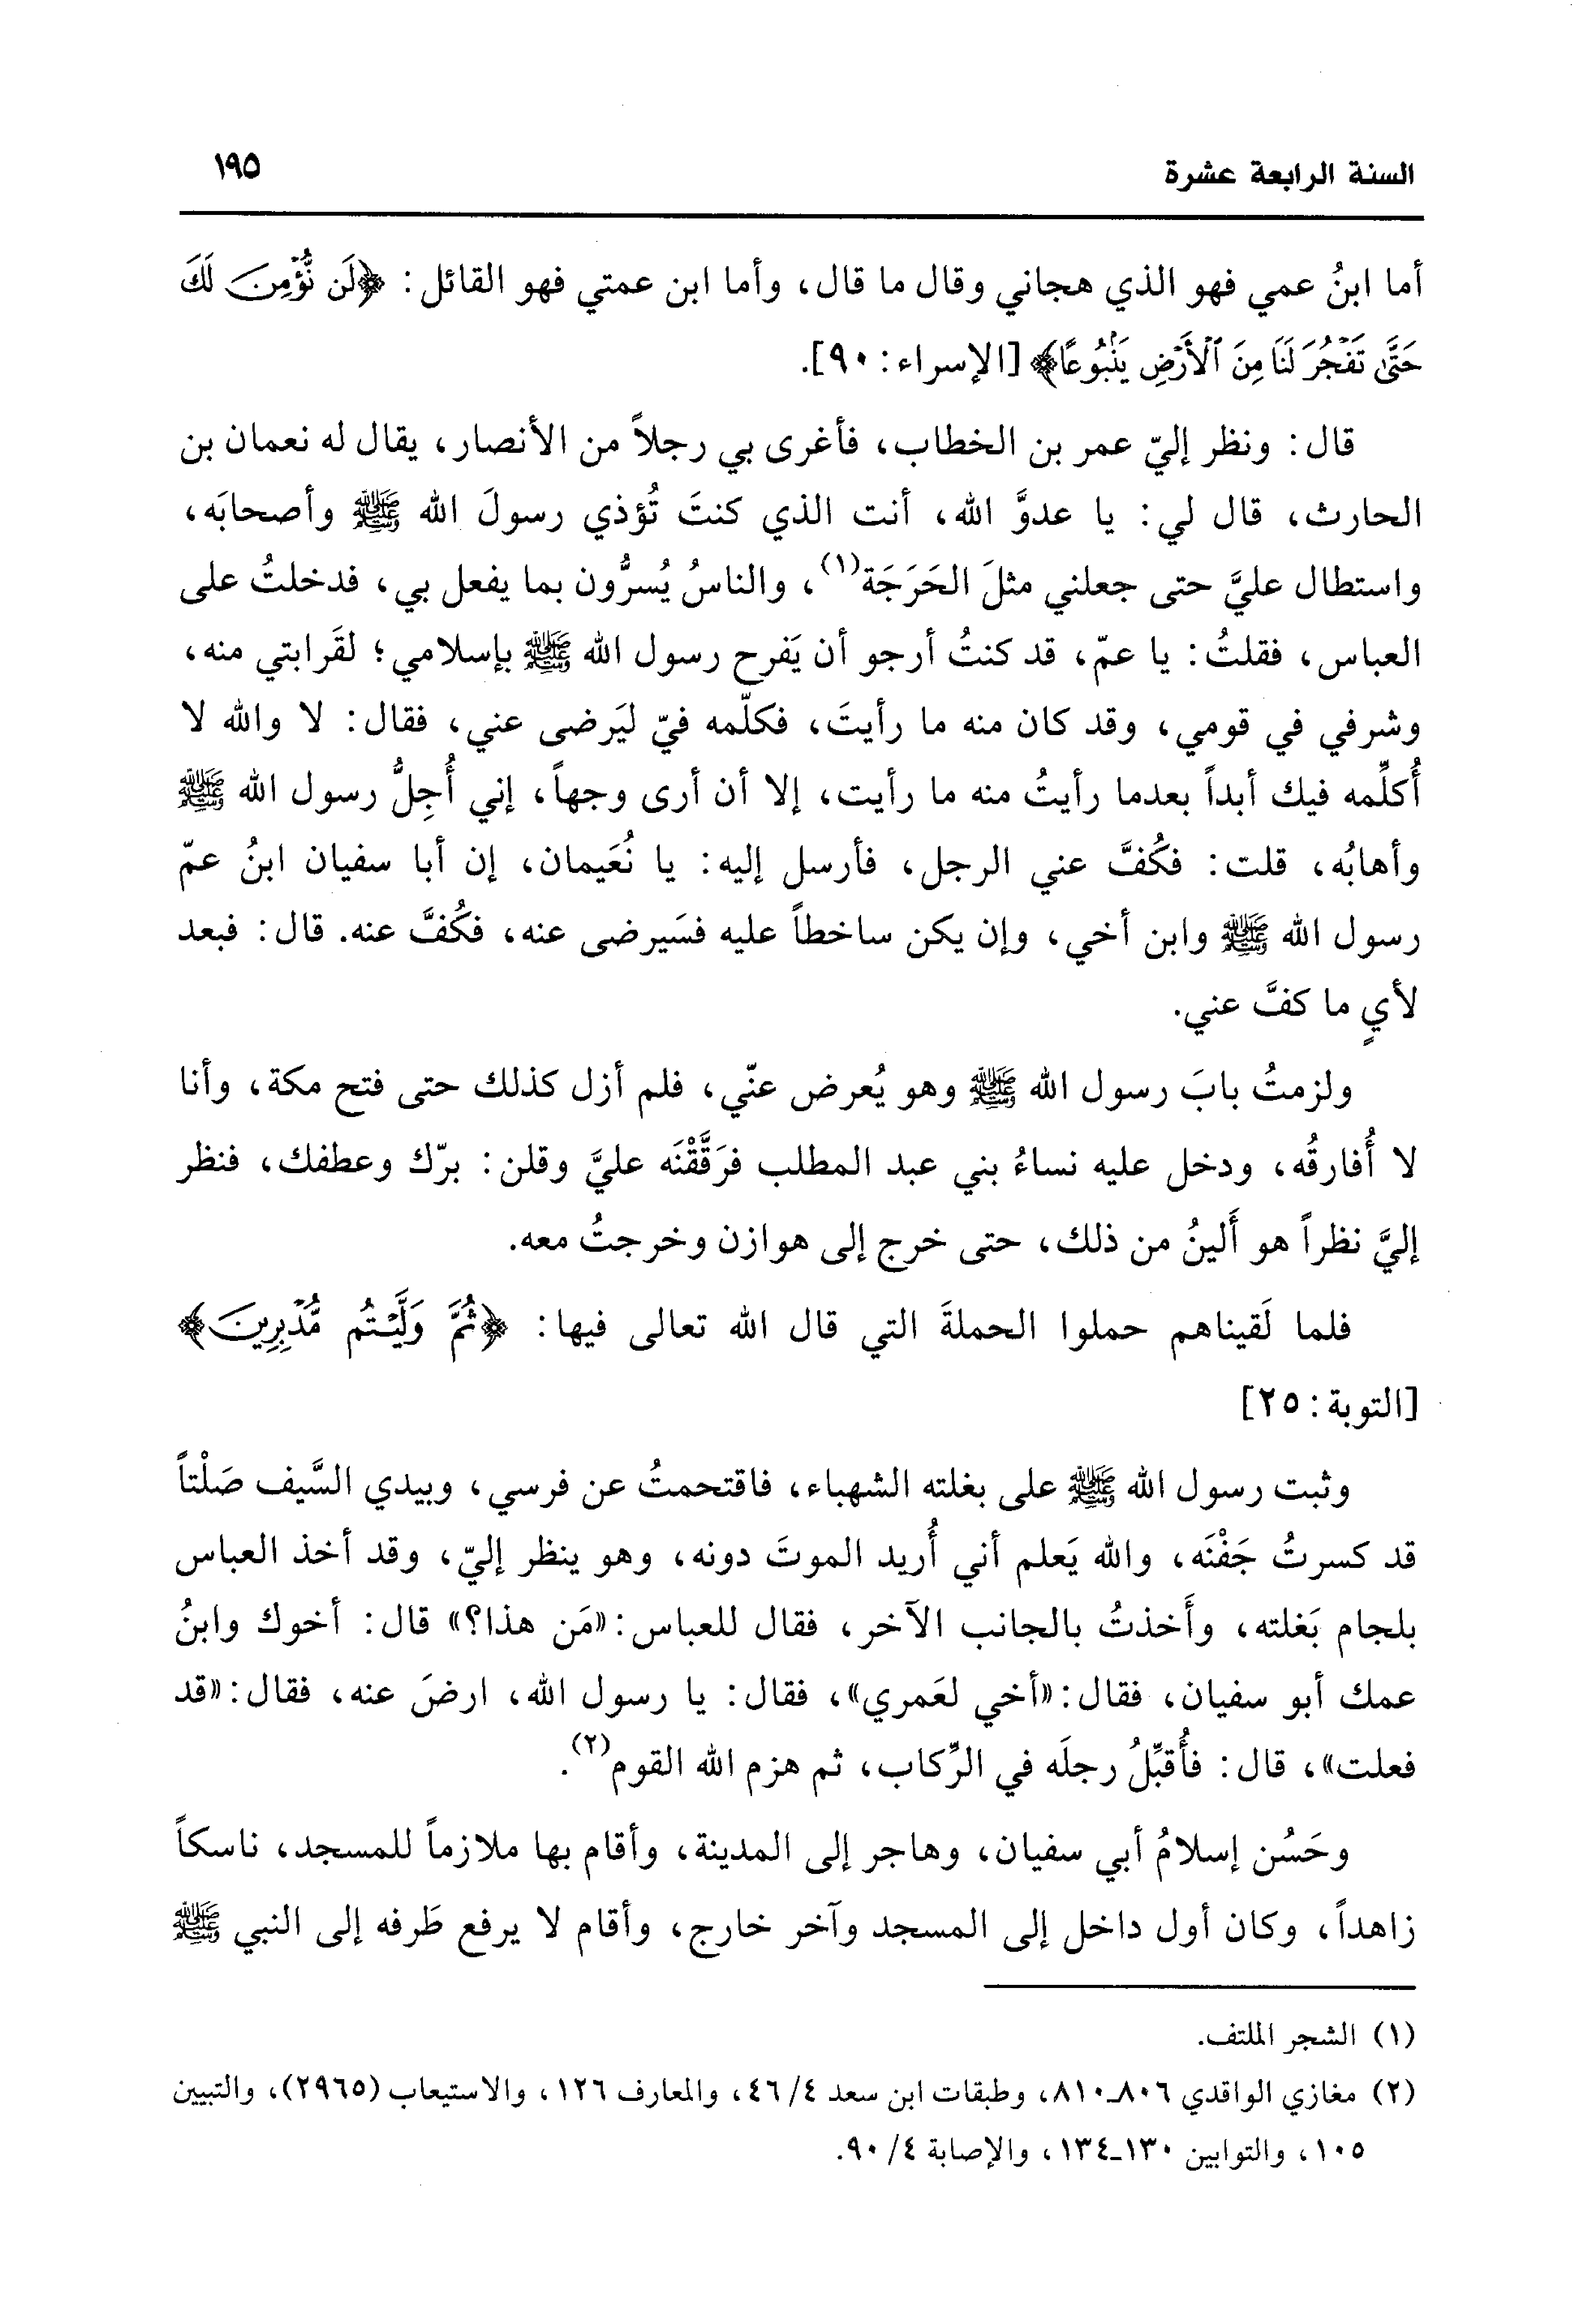 السنة الرابعة عشرة ١٩٥
أما ابنُ عمي فهو الذي هجاني وقال ما قال، وأما ابن عمتي فهو القائل: ﴿لَن نُّؤْمِنَ لَكَ
حَتَّىٰ تَفْجُرَ لَنَا مِنَ ٱلْأَرْضِ يَنۢبُوعًا﴾ [الإسراء: ٩٠].
قال: ونظر إليّ عمر بن الخطاب، فأغرى بي رجلاً من الأنصار، يقال له نعمان بن
الحارث، قال لي: يا عدوَّ الله، أنت الذي كنتَ تُؤذي رسولَ الله ﷺ وأصحابَه،
واستطال عليَّ حتى جعلني مثلَ الحَرَجَة(١)، والناسُ يُسرُّون بما يفعل بي، فدخلتُ على
العباس، فقلتُ: يا عمّ، قد كنتُ أرجو أن يَفرح رسول الله ﷺ بإسلامي؛ لقَرابتي منه،
وشرفي في قومي، وقد كان منه ما رأيتَ، فكلّمه فيّ ليَرضى عني، فقال: لا والله لا
أُكلِّمه فيك أبداً بعدما رأيتُ منه ما رأيت، إلا أن أرى وجهاً، إني أُجِلُّ رسول الله ﷺ
وأهابُه، قلت: فكُفَّ عني الرجل، فأرسل إليه: يا نُعَيمان، إن أبا سفيان ابنُ عمّ
رسول الله ﷺ وابن أخي، وإن يكن ساخطاً عليه فسَيرضى عنه، فكُفَّ عنه. قال: فبعد
لأيٍ ما كفَّ عني.
ولزمتُ بابَ رسول الله ﷺ وهو يُعرض عنّي، فلم أزل كذلك حتى فتح مكة، وأنا
لا أُفارقُه، ودخل عليه نساءُ بني عبد المطلب فرَقَّقْنَه عليَّ وقلن: برّك وعطفك، فنظر
إليَّ نظراً هو أَلينُ من ذلك، حتى خرج إلى هوازن وخرجتُ معه.
فلما لَقيناهم حملوا الحملةَ التي قال الله تعالى فيها: ﴿ثُمَّ وَلَّيْتُم مُّدْبِرِينَ﴾
[التوبة: ٢٥]
وثبت رسول الله ﷺ على بغلته الشهباء، فاقتحمتُ عن فرسي، وبيدي السَّيف صَلْتاً
قد كسرتُ جَفْنَه، والله يَعلم أني أُريد الموتَ دونه، وهو ينظر إليّ، وقد أخذ العباس
بلجام بَغلته، وأَخذتُ بالجانب الآخر، فقال للعباس: «مَن هذا؟» قال: أخوك وابنُ
عمك أبو سفيان، فقال: «أخي لعَمري»، فقال: يا رسول الله، ارضَ عنه، فقال: «قد
فعلت»، قال: فأُقبِّلُ رجلَه في الرِّكاب، ثم هزم الله القوم(٢).
وحَسُن إسلامُ أبي سفيان، وهاجر إلى المدينة، وأقام بها ملازماً للمسجد، ناسكاً
زاهداً، وكان أول داخل إلى المسجد وآخر خارج، وأقام لا يرفع طَرفه إلى النبي ﷺ
(١) الشجر الملتف.
(٢) مغازي الواقدي ٨٠٦ـ٨١٠، وطبقات ابن سعد ٤/ ٤٦، والمعارف ١٢٦، والاستيعاب (٢٩٦٥)، والتبيين
١٠٥، والتوابين ١٣٠ـ١٣٤، والإصابة ٤/ ٩٠.